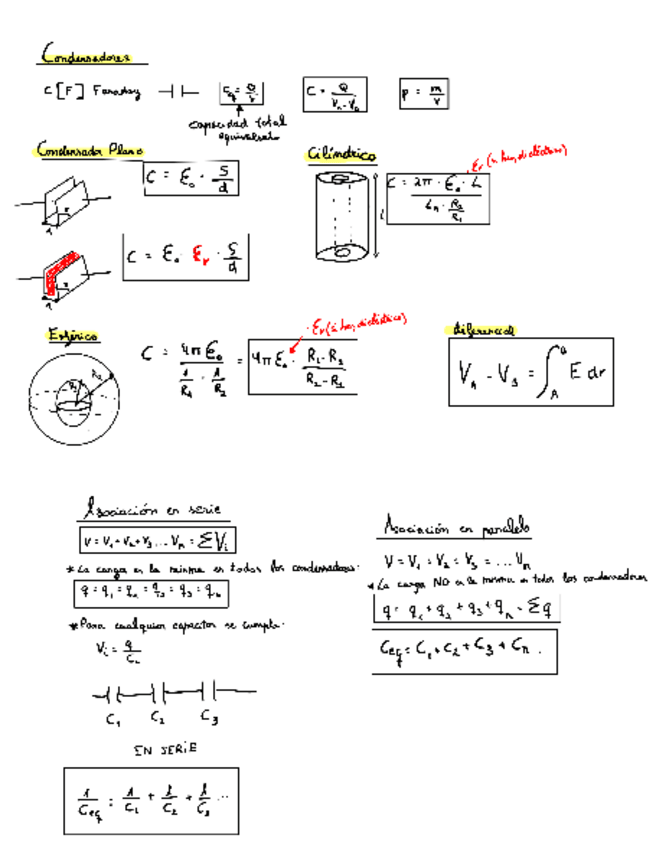 Condensadores
C [F] Faraday C_q = Q/V C = Q/(V_A - V_B) p = m/V
capacidad total
equivalente
Condensador Plano
C = ε₀ · S/d
C = ε₀ εr · S/d
Cilíndrico
εr (si hay dieléctrico)
C = 2π · ε₀ · L / Ln · R₂/R₁
L
Esférico
R₁ R₂
C = 4πε₀ / (1/R₁ · 1/R₂) = 4πε₀ · R₁·R₂ / (R₂-R₁)
εr (si hay dieléctrico)
diferencial
V_A - V_B = ∫_A^B E dr
Asociación en serie
V = V₁ + V₂ + V₃ ... Vn = ΣVi
* La carga es la misma en todos los condensadores.
* Para cualquier capacitor se cumple.
Vi = q/Ci
C₁ C₂ C₃
EN SERIE
1/Ceq = 1/C₁ + 1/C₂ + 1/C₃ ...
Asociación en paralelo
V = V₁ = V₂ = V₃ = ... Vn
* La carga NO es la misma en todos los condensadores
q = q₁ + q₂ + q₃ + qn = Σq
Ceq = C₁ + C₂ + C₃ + Cn .